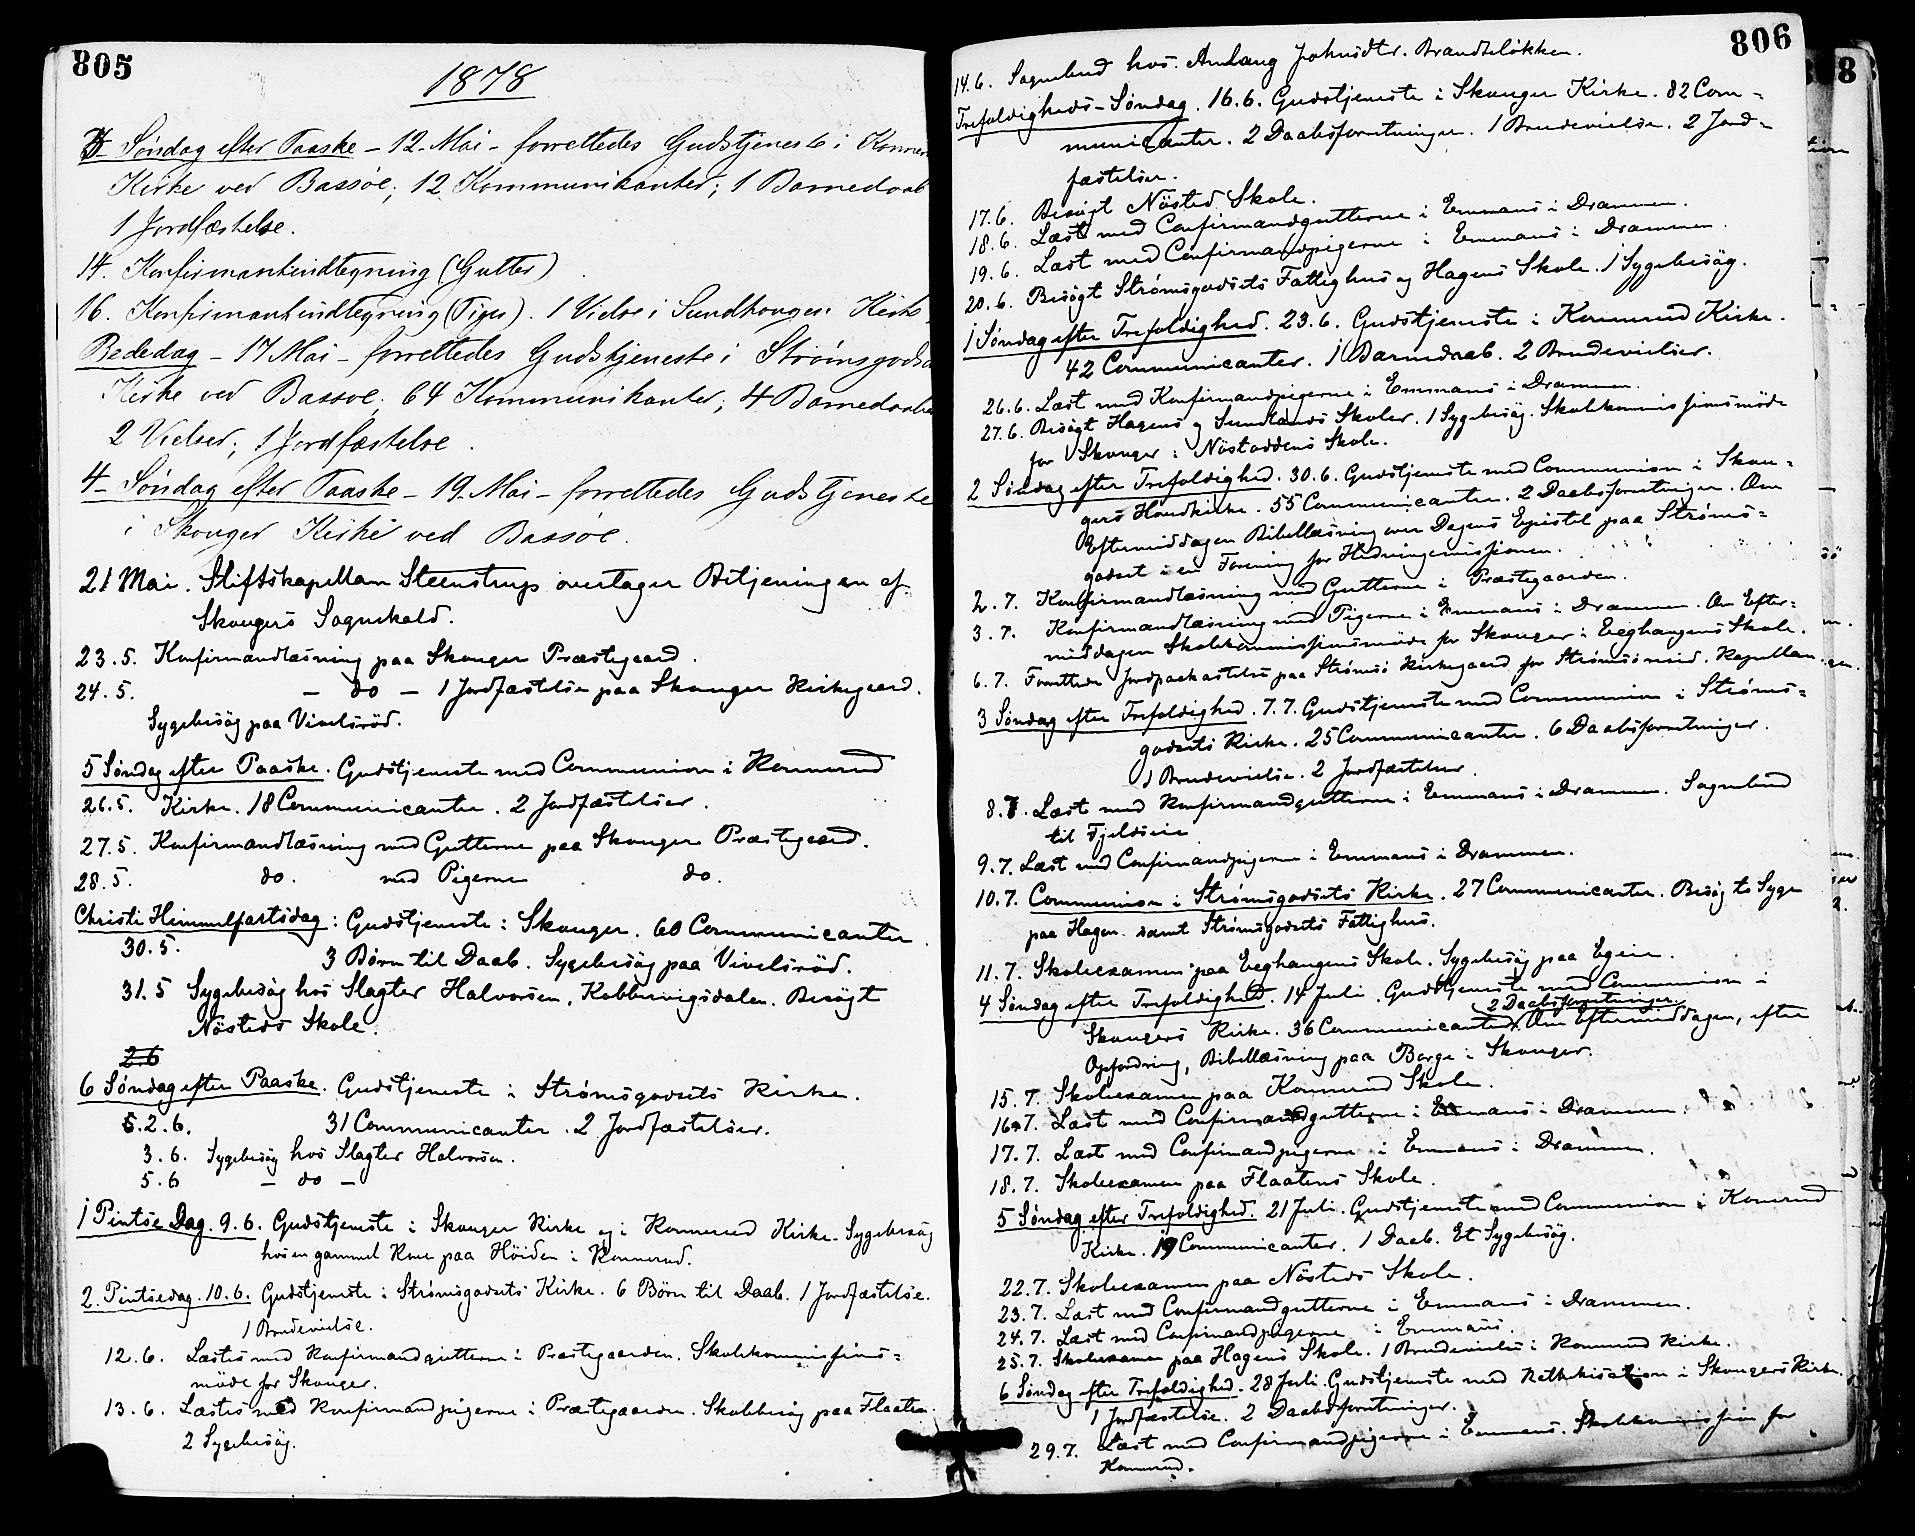 805
1878
3- Søndag efter Paaske - 12. Mai - forrettedes Gudstjeneste i Konnerud
Kirke ved Bassøe; 12 Kommunikanter; 1 Barnedaab
1 Jordfæstelse.
14. Konfirmantindtegning (Gutter)
16. Konfirmantindtegning (Piger). 1 Vielse i Sundhougen Kirke.
Bededag - 17 Mai - forrettedes Gudstjeneste i Strømsgodset
Kirke ved Bassøe; 64 Kommunikanter; 4 Barnedaab
2 Vielser; 1 Jordfæstelse.
4- Søndag efter Paaske - 19. Mai - forrettedes Gudstjeneste
i Skouger Kirke ved Bassøe.
21 Mai. Stiftskapellan Steenstrup overtager Betjeningen af
Skougers Sognekald.
23.5. Konfirmandlæsning paa Skouger Præstegaard.
24.5. - do - 1 Jordfæstelse paa Skouger Kirkegaard.
Sygebesøg paa Vivelsrød.
5 Søndag efter Paaske. Gudstjeneste med Communion i Konnerud
26.5. Kirke. 18 Communicanter. 2 Jordfæstelser.
27.5. Konfirmandlæsning med Gutterne paa Skouger Præstegaard.
28.5. do. med Pigerne do.
Christi Himmelfartsdag: Gudstjeneste i Skouger. 60 Communicanter.
30.5. 3 Børn til Daab. Sygebesøg paa Vivelsrød.
31.5 Sygebesøg hos Slagter Halvorsen, Kobbervigsdalen. Besøgt
Nøsteds Skole.
2.6
6 Søndag efter Paaske. Gudstjeneste i Strømsgodsets Kirke.
2.6. 31 Communicanter. 2 Jordfæstelser.
3.6. Sygebesøg hos Slagter Halvorsen.
5.6 - do -
1 Pintse Dag. 9.6. Gudstjeneste i Skouger Kirke og i Konnerud Kirke. Sygebesøg
hos en gammel Kone paa Høiden i Konnerud.
2. Pintsedag. 10.6. Gudstjeneste i Strømsgodsets Kirke. 6 Børn til Daab. 1 Jordfæstelse.
1 Brudevielse.
12.6. Læstes med Konfirmandgutterne i Præstegaarden. Skolekommissions=
møde for Skouger.
13.6. Læstes med Konfirmandpigerne i Præstegaarden. Skolebesøg paa Flaaten.
2 Sygebesøg.
806
14.6. Sognebud hos Anlaug Johnsdtr. Brandteløkken.
Trefoldigheds-Søndag. 16.6. Gudstjeneste i Skouger Kirke. 82 Com=
municanter. 2 Daabsforretninger. 1 Brudevielse. 2 Jord=
fæstelser.
17.6. Besøgt Nøsted Skole.
18.6. Læst med Confirmandgutterne i Emmaus i Drammen.
19.6. Læst med Confirmandpigerne i Emmaus i Drammen.
20.6. Besøgt Strømsgodsets Fattighus og Hagens Skole. 1 Sygebesøg.
1 Søndag efter Trefoldighed. 23.6. Gudstjeneste i Konnerud Kirke.
42 Communicanter. 1 Barnedaab. 2 Brudevielser.
26.6. Læst med Konfirmandpigerne i Emmaus i Drammen.
27.6. Besøgt Hagens og Sundlands Skoler. 1 Sygebesøg. Skolekommissionsmøde
for Skouger i Nøstoddens Skole.
2 Søndag efter Trefoldighed. 30.6. Gudstjeneste med Communion i Skou=
gers Hovedkirke. 55 Communicanter. 2 Daabsforretninger. Om
Eftermiddagen Bibellæsning over Dagens Epistel paa Strøms=
godset i en Forening for Hedningemissionen.
2.7. Konfirmandlæsning med Gutterne i Præstegaarden.
3.7. Konfirmandlæsning med Pigerne i Emmaus i Drammen. Om Efter=
middagen Skolekommissionsmøde for Skouger i Eeghaugens Skole.
6.7. Forrettede Jordpaakastelse paa Strømsø Kirkegaard for Strømsø resid. Kapellan.
3 Søndag efter Trefoldighed. 7.7. Gudstjeneste med Communion i Strøms=
godsets Kirke. 25 Communicanter. 6 Daabsforretninger.
1 Brudevielse. 2 Jordfæstelser.
8.7. Læst med Konfirmandgutterne i Emmaus i Drammen. Sognebud
til Fjeldseie
9.7. Læst med Confirmandpigerne i Emmaus i Drammen.
10.7. Communion i Strømsgodsets Kirke. 27 Communicanter. Besøgt Syge
paa Hagen samt Strømsgodsets Fattighus.
11.7. Skoleexamen paa Eeghaugens Skole. Sygebesøg paa Egeie.
4 Søndag efter Trefoldighed. 14 Juli. Gudstjeneste med Communion i
2 Daabsforretninger
Skougers Kirke. 36 Communicanter. Om Eftermiddagen, efter
Opfordring, Bibellæsning paa Borge i Skouger.
15.7. Skoleexamen paa Konnerud Skole.
16.7. Læst med Confirmandgutterne i Emmaus i Drammen.
17.7. Læst med Confirmandpigerne i Emmaus i Drammen.
18.7. Skoleexamen paa Flaatens Skole.
5 Søndag efter Trefoldighed. 21 Juli. Gudstjeneste med Communion i Konnerud
Kirke. 19 Communicanter. 1 Daab. Et Sygebesøg.
22.7. Skoleexamen paa Nøsteds Skole.
23.7. Læst med Confirmandgutterne i Emmaus i Drammen.
24.7. Læst med Confirmandpigerne i Emmaus.
25.7. Skoleexamen paa Hagens Skole. 1 Brudevielse i Konnerud Kirke.
6 Søndag efter Trefoldighed. 28 Juli. Gudstjeneste med Kathekisation i Skougers Kirke.
1 Jordfæstelse. 2 Daabsforretninger.
29.7. Læst med Confirmandpigerne i Emmaus. Skolekommission for
Konnerud.